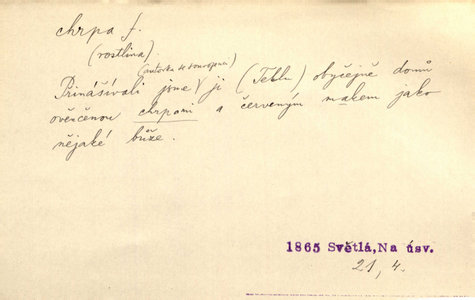 chrpa f.
(rostlina).
(autorka se sourozenci)
Přinášívali jsme ji (Teklu) obyčejně domů
ověnčenou chrpami a červeným makem jako
nějaké bůže.
1865 Světlá, Na úsv.
21, 4.